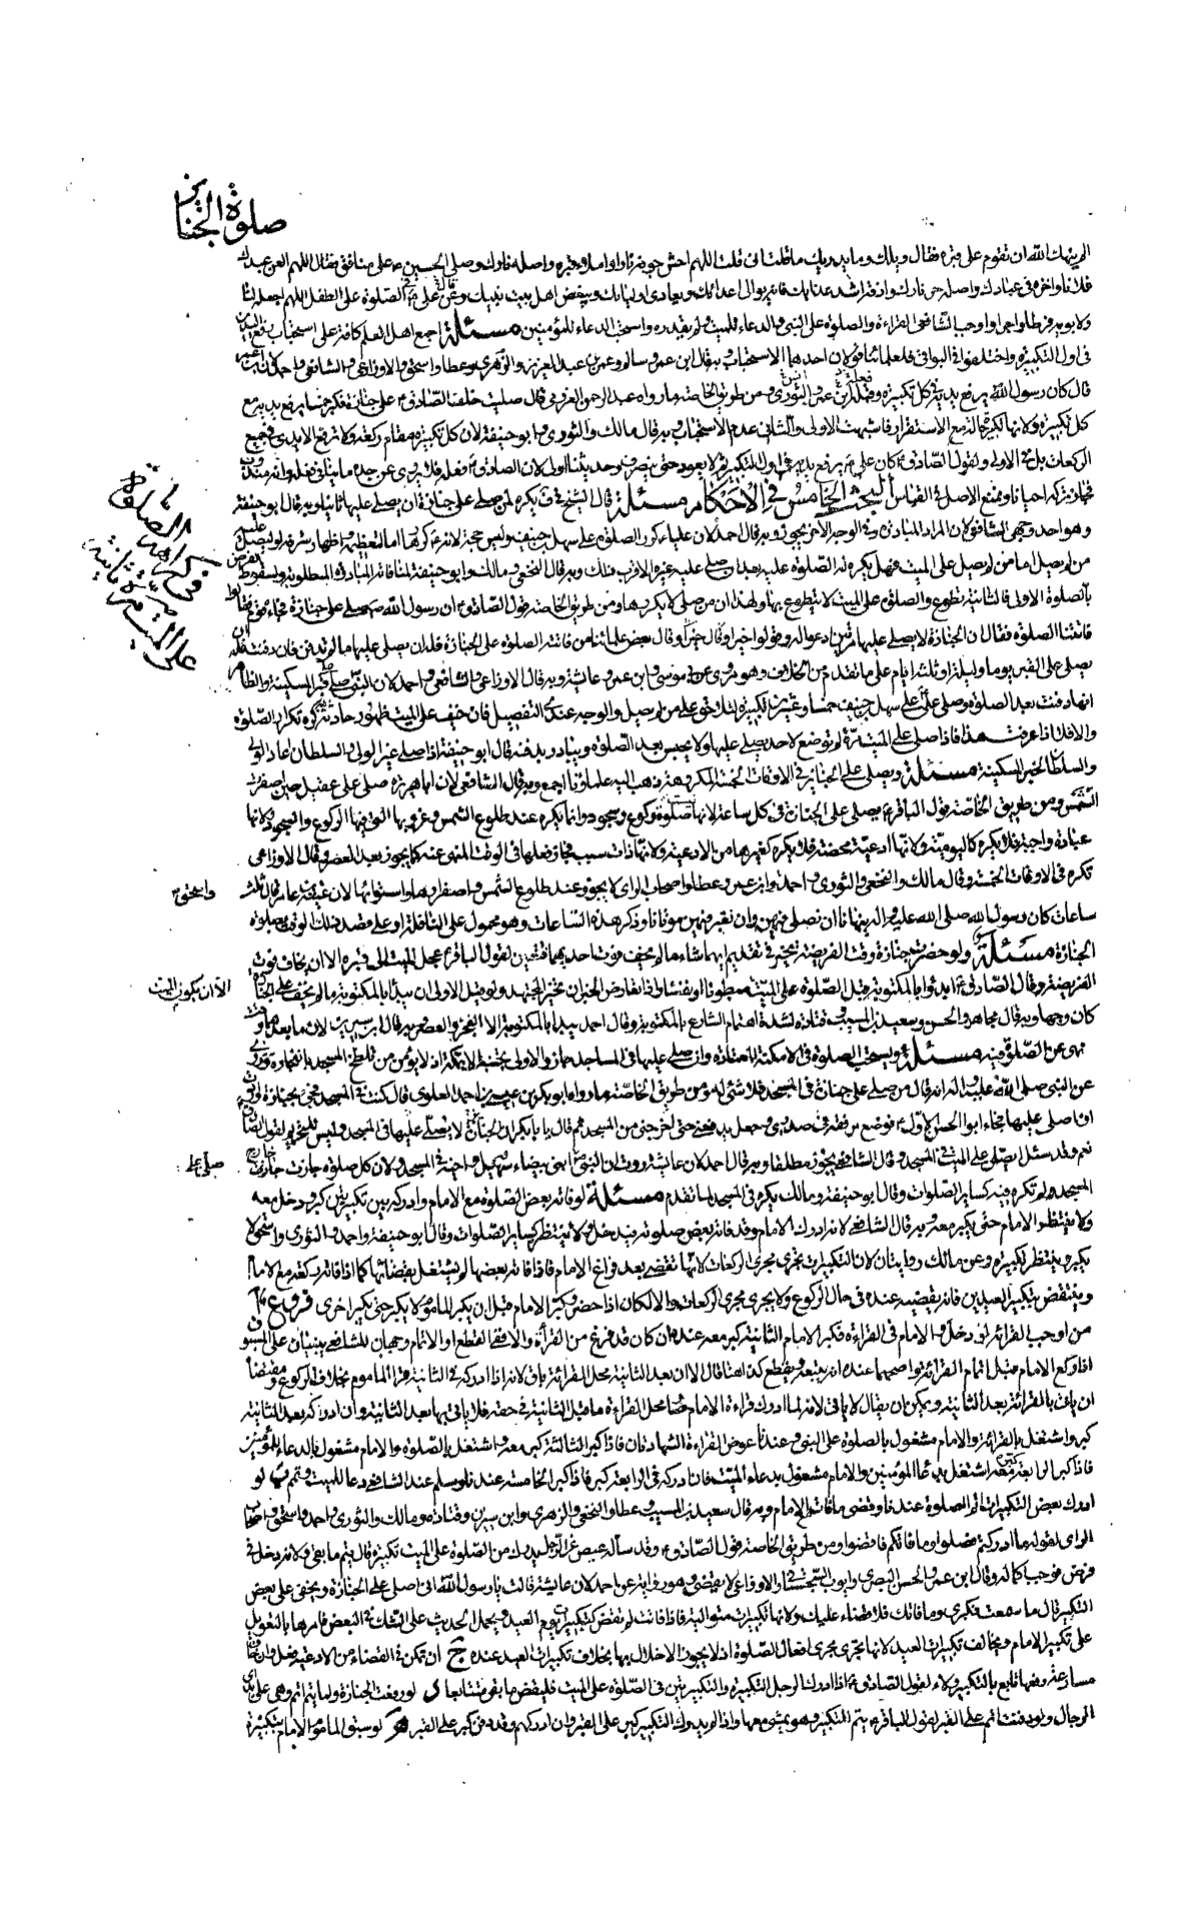 صلوة الجنائز
الم ينهك الله ان تقوم على قبره فقال ويلك وما يدريك ما قلت انى قلت اللهم احش جوفه نارا واملأ قبره نارا واصله نارا وصلى الحسين ع على منافق فقال اللهم العن عبدك
فلانا واخزه فى عبادك واصله حر نارك واذقه اشد عذابك فانه يوالى اعدائك ويعادى اوليائك ويبغض اهل بيت نبيك وعن على ع فى الصلوة على الطفل اللهم اجعله لنا
ولابويه فرطا واجرا واوجب الشافعى القراءة والصلوة على النبى والدعاء للميت ولم يقدره واستحب الدعاء للمؤمنين مسئلة اجمع اهل العلم كافة على استحباب رفع اليدين
فى اول التكبيرة واختلفوا فى البواقى فلعلمائنا قولان احدهما الاستحباب وبه قال ابن عمر وسالم وعمر بن عبد العزيز والزهرى وعطا واسحق والاوزاعى والشافعى واحمد لان
قال كان رسول الله يرفع يديه فى كل تكبيرة وفعله ابن عمر والثورى ومن طريق الخاصة ما رواه عبد الرحمن العزرمى قال صليت خلف الصادق ع على جنازة فكبر خمسا يرفع يديه مع
كل تكبيرة ولانها تكبيرة حالة مع الاستقرار فاشبهت الاولى والثانى عدم الاستحباب وبه قال مالك والثورى وابو حنيفة لان كل تكبيرة مقام ركعة ولا ترفع الايدى فى جميع
الركعات بل فى الاولى ولقول الصادق ع كان على ع يرفع يديه فى اول التكبير ثم لا يعود حتى ينصرف وحديثنا اولى لان الصادق ع فعله فلا يروى عن جده ما ينافى فعله ولانه مندوب
فجاز تركه احيانا ونمنع الاصل فى القياس البحث الخامس فى الاحكام مسئلة قال الشيخ فى ف يكره لمن صلى على جنازة ان يصلى عليها ثانيا وبه قال ابو حنيفة
وهو احد وجهى الشافعى لان المراد المبادرة وفى الوجه الاخر يجوز وبه قال احمد لان عليا ع كرر الصلوة على سهل بن حنيف وليس حجة
من لم يصل اما من لم يصل على الميت فهل يكره له الصلوة عليه بعد ان صلى عليه غيره الاقرب ذلك وبه قال النخعى ومالك وابو حنيفة لمنافاته المبادرة المطلوبة ولسقوط الفرض
بالصلوة الاولى فالثانية تطوع والصلوة على الميت لا يتطوع بها ولهذا ان من صلى لا يكررها ومن طريق الخاصة قول الصادق ع ان رسول الله ص صلى على جنازة فجاء قوم فقالوا
فاتتنا الصلوة فقال ان الجنازة لا يصلى عليها مرتين ادعوا له وقولوا خيرا وقال بعض علمائنا من فاتته الصلوة على الجنازة فله ان يصلى عليها ما لم تدفن فان دفنت فله ان
يصلى على القبر يوما وليلة او ثلثة ايام على ما تقدم من الخلاف وهو مروى عن ابى موسى وابن عمر وعايشة وبه قال الاوزاعى والشافعى واحمد لان النبى صلى على قبر المسكينة والظاهر
انها دفنت بعد الصلوة وصلى على ع على سهل بن حنيف خمسا وعشرين تكبيرة لتلاحق من لم يصل والوجه عندى التفصيل فان خيف على الميت ظهور حادثة به كره تكرار الصلوة
والا فلا اذا عرفت هذا فاذا صلى على الميت مرة لم توضع لاحد يصلى عليها ولا يحبس بعد الصلوة ويبادر بدفنه قال ابو حنيفة اذا صلى غير الولى والسلطان اعاد الولى
والسلطان لخبر المسكينة مسئلة ويصلى على الجنائز فى الاوقات الخمسة المكروهة ذهب اليه علماؤنا اجمع وبه قال الشافعى لان ابا هريرة صلى على عقيل حين اصفرت
الشمس ومن طريق الخاصة قول الباقر ع يصلى على الجنازة فى كل ساعة لانها ليست صلوة ركوع وسجود وانما يكره عند طلوع الشمس وغروبها التى فيها الركوع والسجود ولانها
عبادة واجبة فلا يكره كاليومية ولانها ادعية محضة فلا يكره كغيرها من الادعية ولانها ذات سبب فجاز فعلها فى الوقت المنهى عنه كما يجوز بعد العصر وقال الاوزاعى
تكره فى الاوقات الخمسة وقال مالك والنخعى والثورى واحمد وابن عمر وعطا واصحاب الراى لا يجوز عند طلوع الشمس واصفرارها واستوائها لان عقبة بن عامر قال ثلث
ساعات كان رسول الله صلى الله عليه واله ينهانا ان نصلى فيهن وان نقبر فيهن موتانا وذكر هذه الساعات وهو محمول على النافلة او على قصد ذلك الوقت بصلوة
الجنازة مسئلة ولو حضرت جنازة وقت الفريضة تخير فى تقديم ايهما شاء ما لم يخف فوت احديهما فتتعين لقول الباقر ع عجل الميت الى قبره الا ان يخاف فوت
الفريضة وقال الصادق ع ابدؤا بالمكتوبة قبل الصلوة على الميت الا ان يكون الميت مبطونا او نفسا واذا تعارض الخبران تخير المجتهد ولو قيل الاولى ان يبدأ بالمكتوبة ما لم يخف على الجنازة
كان وجها وبه قال مجاهد والحسن وسعيد بن المسيب وقتادة لشدة اهتمام الشارع بالمكتوبة وقال احمد يبدأ بالمكتوبة الا الفجر والعصر وبه قال ابن سيرين لان ما بعدهما وقت
نهى عن الصلوة فيه مسئلة ويستحب الصلوة فى الامكنة المعتادة وان صلى عليها فى المساجد جاز والاولى تجنبه الا بمكة اذ لا يؤمن من تلطخ المسجد بانفجاره وروى
عن النبى صلى الله عليه واله انه قال من صلى على جنازة فى المسجد فلا شئ له ومن طريق الخاصة ما رواه ابو بكر بن عيسى بن احمد العلوى قال كنت فى المسجد فجئ بجنازة فاردت
ان اصلى عليها فجاء ابو الحسن الاول ع فوضع مرفقه فى صدرى وجعل يدفعنى حتى اخرجنى من المسجد ثم قال يا بابكر ان الجنائز لا يصلى عليها فى المسجد وليس للتحريم لقول الصادق
نعم وقد سئل ايصلى على الميت فى المسجد وقال الشافعى يجوز مطلقا وبه قال احمد لان عايشة روت ان النبى صلى على ابنى بيضاء سهيل واخيه فى المسجد ولان كل صلوة جازت خارج
المسجد لم تكره فيه كساير الصلوات وقال ابو حنيفة ومالك يكره فى المسجد لما تقدم مسئلة لو فاته بعض الصلوة مع الامام وادركه بين تكبيرتين كبر ودخل معه
ولا ينتظر الامام حتى يكبر معه وبه قال الشافعى لانه ادرك الامام وقد فاته بعض صلوته فيدخل ولا ينتظر كساير الصلوات وقال ابو حنيفة واحمد والثورى واسحق لا
يكبر وينتظر تكبيره وعن مالك روايتان لان التكبيرات تجرى مجرى الركعات لانها تقضى بعد فراغ الامام فاذا فاته بعضها لم يشتغل بقضائها كما اذا فاته ركعة مع الامام
وينتقض بتكبير العيدين فانه يقضيه عنده فى حال الركوع ولا يجرى مجرى الركعات والا لكان اذا حضر وكبر الامام قبل ان يكبر الماموم لا يكبر حتى يكبر اخرى فروع ا
من اوجب القراءة لو دخل والامام فى القراءة فكبر الامام الثانية كبر معه عنده ان كان قد فرغ من القراءة والا ففى القطع او الاتمام وجهان للشافعى يبنيان على المسبوق
اذا ركع الامام قبل اتمام القراءة واصحهما عنده انه يتبعه ويقطع كذا هنا قال الا ان بعد الثانية محل القراءة باق لانه اذا ادركه فى الثانية قرأ الماموم بخلاف الركوع ومقتضاه
ان ياتى بالقراءة بعد الثانية ويمكن ان يقال لا ياتى لانه لما ادرك قراءة الامام محل القراءة ما قبل الثانية فى حقه فلا ياتى بها بعد الثانية وان ادركه بعد الثانية
كبر واشتغل بالقراءة والامام مشغول بالصلوة على النبى وعندنا عوض القراءة الشهادتان فاذا كبر الثالثة كبر معه واشتغل بالصلوة والامام مشغول بالدعاء للمؤمنين
فاذا كبر الرابعة كبر معه اشتغل بدعاء المؤمنين والامام مشغول بدعاء الميت فان ادركه فى الرابعة كبر فاذا كبر الخامسة عندنا وسلم عند الشافعى دعا للميت وتمم ب لو
ادرك بعض التكبيرات اتم الصلوة عندنا وقضى ما فات الامام وبه قال سعيد بن المسيب وعطا والنخعى والزهرى وابن سيرين وقتادة ومالك والثورى واحمد واسحق واصحاب
الراى لقوله ما ادركتم فصلوا وما فاتكم فاقضوا ومن طريق الخاصة قول الصادق ع وقد ساله عيص عن الرجل يدرك من الصلوة على الميت تكبيرة قال يتم ما بقى ولانه دخل فى
فرض فوجب اكماله وقال ابن عمر والحسن البصرى وايوب السجستانى والاوزاعى لا يقضى وهو رواية عن احمد لان عايشة قالت يا رسول الله انى اصلى على الجنازة ويخفى على بعض
التكبير قال ما سمعت فكبرى وما فاتك فلا قضاء عليك ولانها تكبيرات متوالية فاذا فاتت لم تقض كتكبيرات العيد ويحمل الحديث على الشك فى البعض فامرها بالتعويل
على تكبير الامام ويخالف تكبيرات العيد لانها تجرى مجرى افعال الصلوة اذ لا يجوز الاخلال بها بخلاف تكبيرات العيد عنده ج ان تمكن فى القضاء من الادعية فعل وان خاف
مسارعة رفعها تابع بالتكبير ولاء لقول الصادق ع اذا ادرك الرجل التكبيرة والتكبيرتين فى الصلوة على الميت فليقض ما بقى متتابعا د لو رفعت الجنازة ولما يتم اتم وهى على ايدى
الرجال ولو دفنت اتم على القبر لقول الباقر ع يتم التكبير وهو يمشى معها واذا لم يدرك التكبير كبر على القبر وان ادركهم وقد دفن كبر على القبر ه لو سبق الماموم الامام بتكبيرة
فى كراهة الصلوة
على الميت مرة ثانية
واسحق
الا ان يكون الميت
صلى على